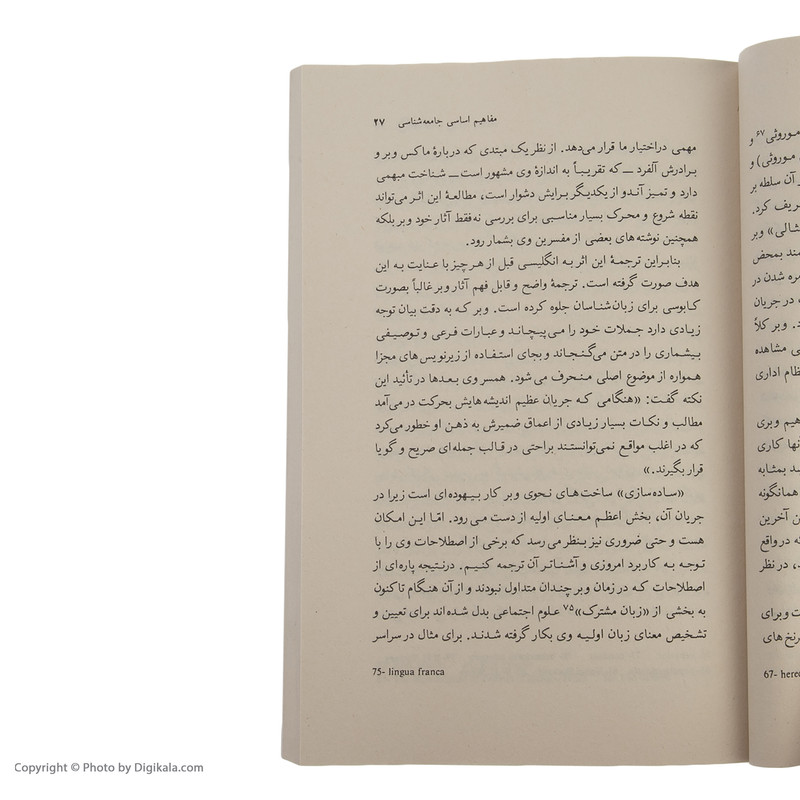 مفاهیم اساسی جامعه‌شناسی ۲۷
مهمی دراختیار ما قرار می‌دهد. از نظر یک مبتدی که دربارهٔ ماکس وبر و
برادرش آلفرد — که تقریباً به اندازهٔ وی مشهور است — شناخت مبهمی
دارد و تمیز آندو از یکدیگر برایش دشوار است، مطالعهٔ این اثر می‌تواند
نقطه شروع و محرک بسیار مناسبی برای بررسی نه‌فقط آثار خود وبر بلکه
همچنین نوشته‌های بعضی از مفسرین وی بشمار رود.
بنابراین ترجمهٔ این اثر به انگلیسی قبل از هر چیز با عنایت به این
هدف صورت گرفته است. ترجمهٔ واضح و قابل فهم آثار وبر غالباً بصورت
کابوسی برای زبان‌شناسان جلوه کرده است. وبر که به دقت بیان توجه
زیادی دارد جملات خود را می‌پیچاند و عبارات فرعی و توصیفی
بیشماری را در متن می‌گنجاند و بجای استفاده از زیرنویس‌های مجزا
همواره از موضوع اصلی منحرف می‌شود. همسر وی بعدها در تأئید این
نکته گفت: «هنگامی که جریان عظیم اندیشه‌هایش بحرکت در می‌آمد
مطالب و نکات بسیار زیادی از اعماق ضمیرش به ذهن او خطور می‌کرد
که در اغلب مواقع نمی‌توانستند براحتی در قالب جمله‌ای صریح و گویا
قرار بگیرند.»
«ساده‌سازی» ساخت‌های نحوی وبر کار بیهوده‌ای است زیرا در
جریان آن، بخش اعظم معنای اولیه از دست می‌رود. امّا این امکان
هست و حتی ضروری نیز بنظر می‌رسد که برخی از اصطلاحات وی را با
توجه به کاربرد امروزی و آشناتر آن ترجمه کنیم. درنتیجه پاره‌ای از
اصطلاحات که در زمان وبر چندان متداول نبودند و از آن هنگام تاکنون
به بخشی از «زبان مشترک»۷۵ علوم اجتماعی بدل شده‌اند برای تعیین و
تشخیص معنای زبان اولیه وی بکار گرفته شدند. برای مثال در سراسر
75- lingua franca
موروثی۶۷ و
موروثی) و
آن سلطه بر
تعریف کرد.
وبر
بمحض
شدن در
در جریان
وبر کلاً
مشاهده
نظام اداری
وبری
کاری
بمثابه
همانگونه
آخرین
در واقع
در نظر
وبرای
67-
Copyright © Photo by Digikala.com